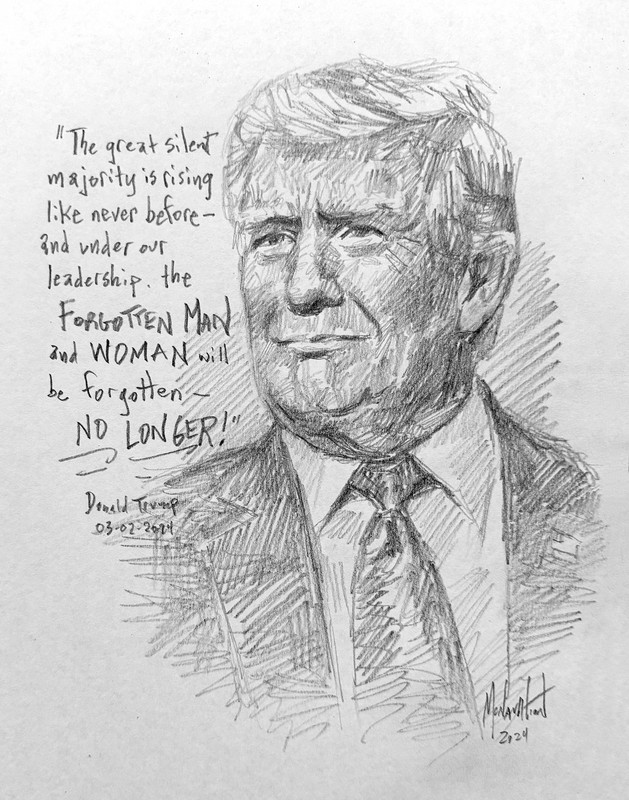 "The great silent
majority is rising
like never before—
and under our
leadership. the
FORGOTTEN MAN
and WOMAN will
be forgotten—
NO LONGER!"
Donald Trump
03-02-2024
2024